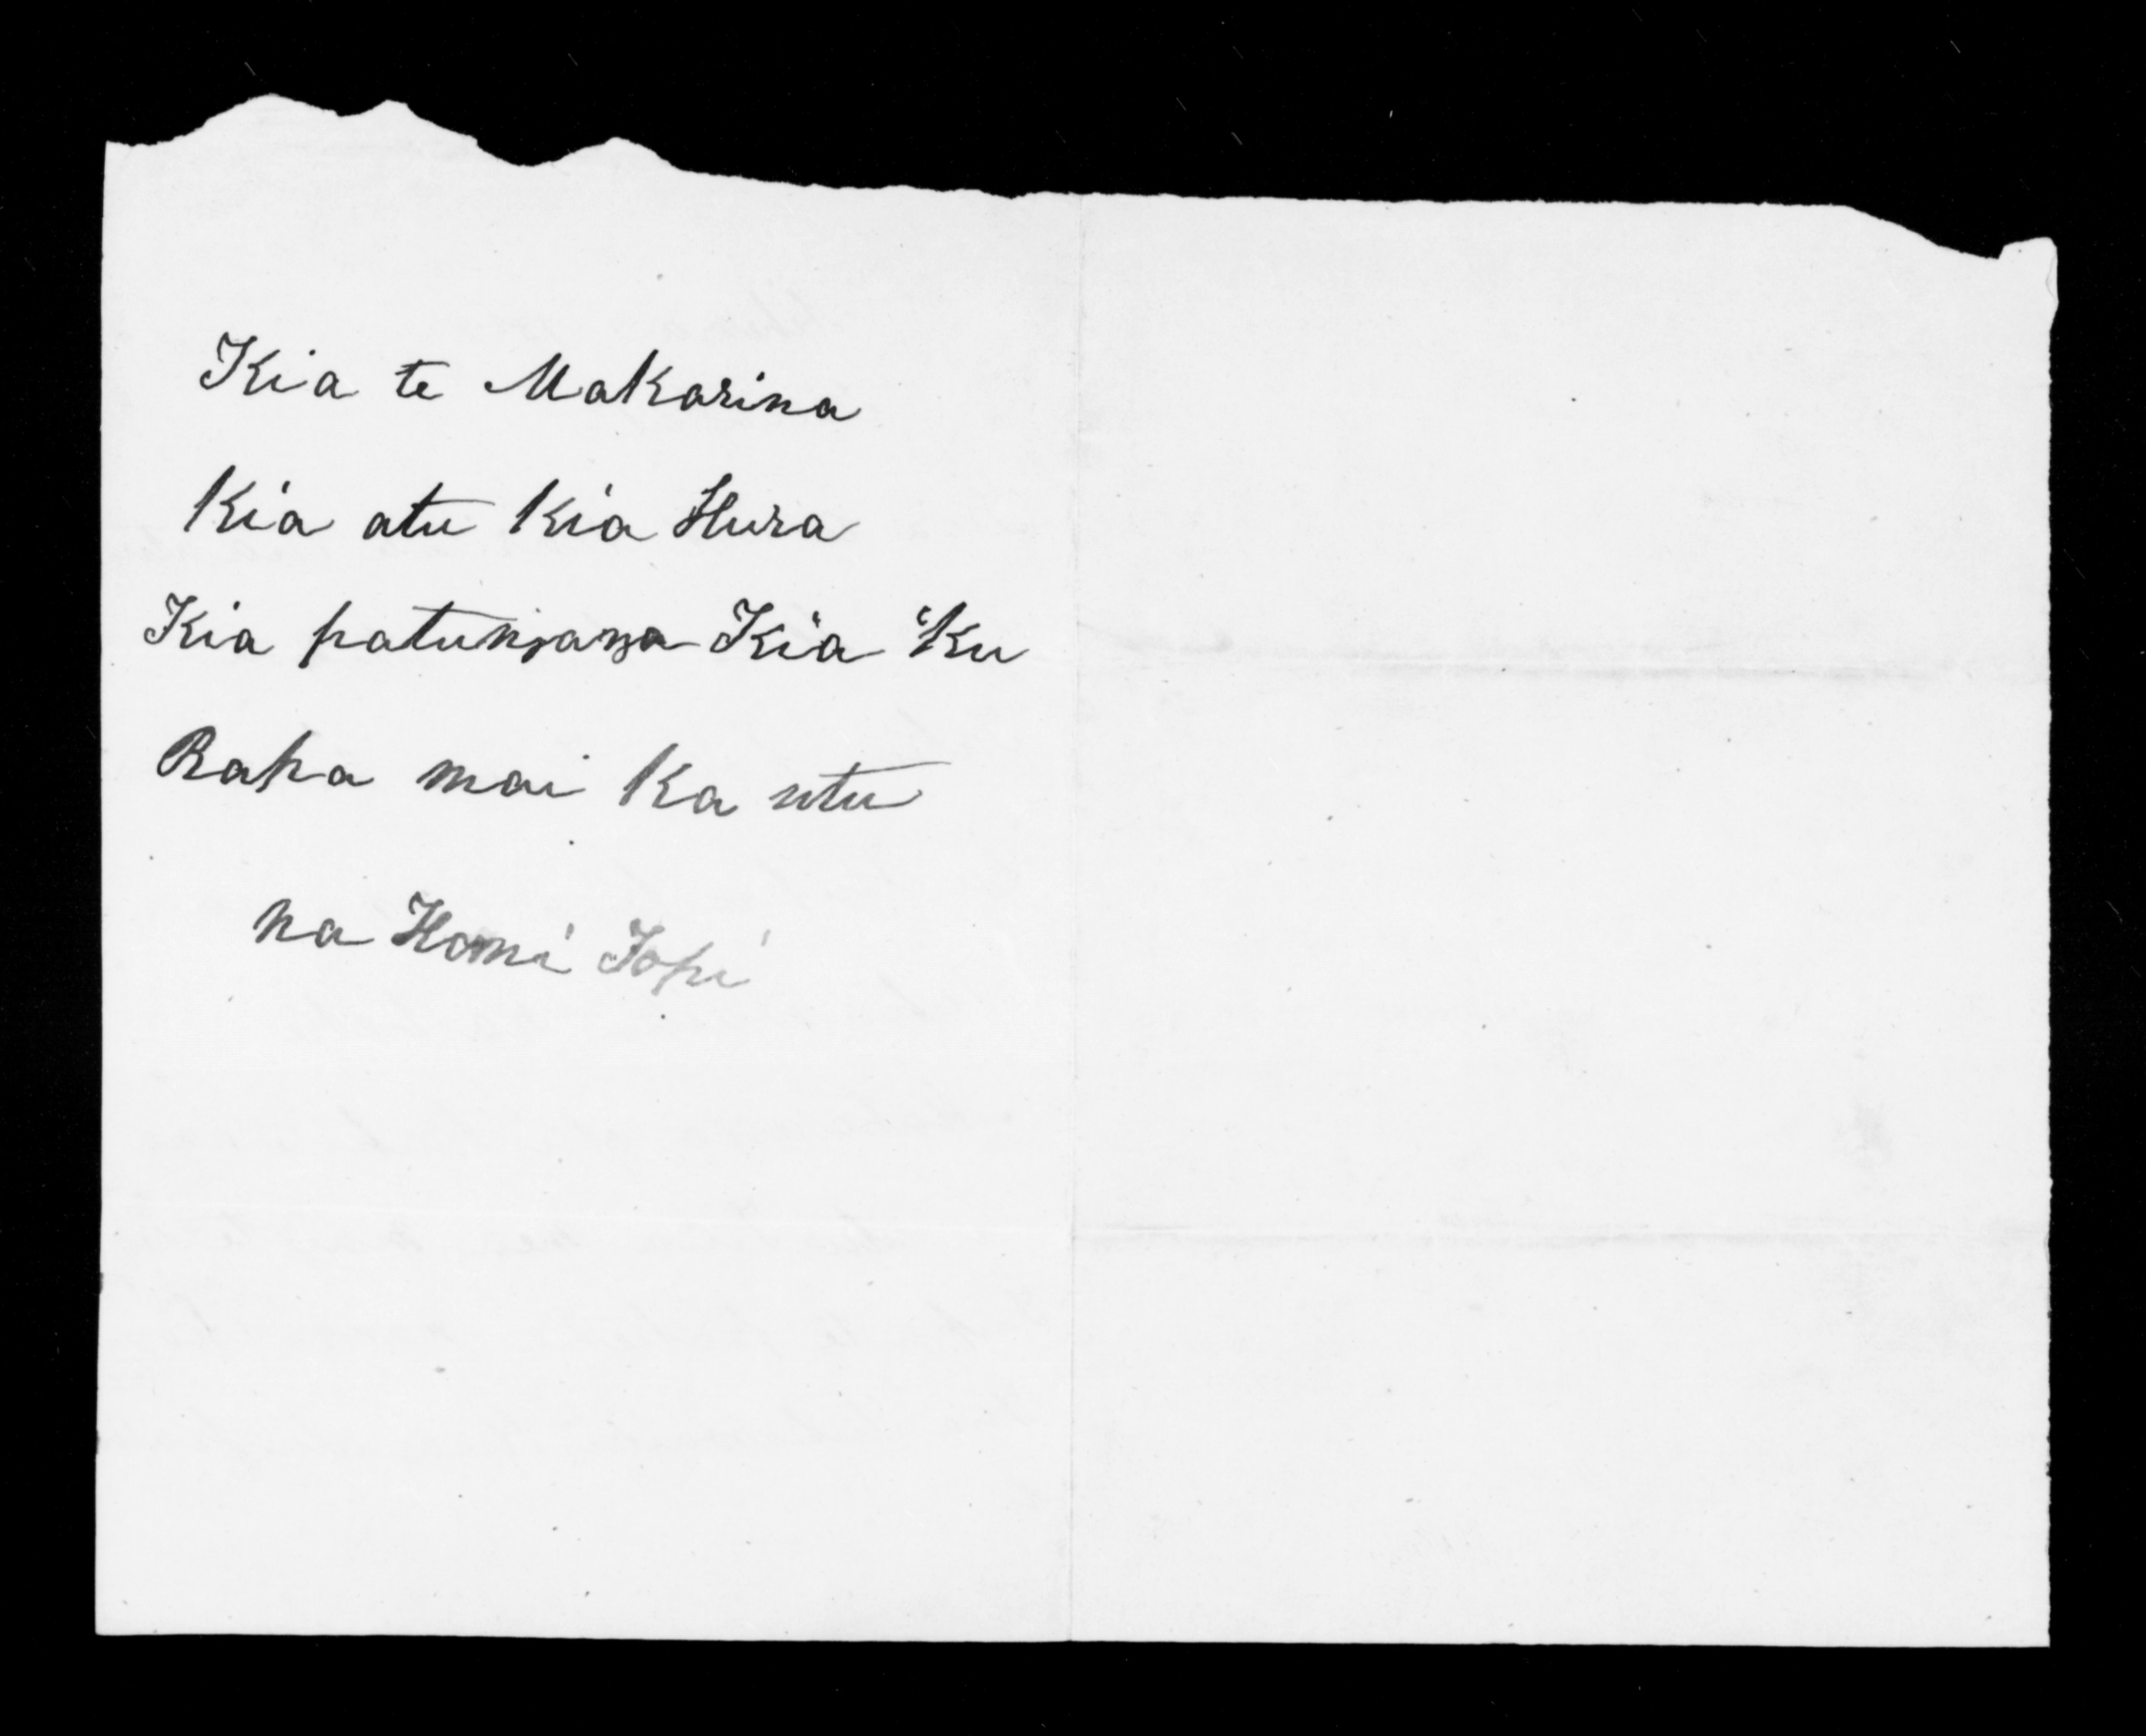 Kia te Makarina
Kia atu Kia Hura
Kia patungana Kia Ku
Rapa mai Ka utu
na Homi Topi